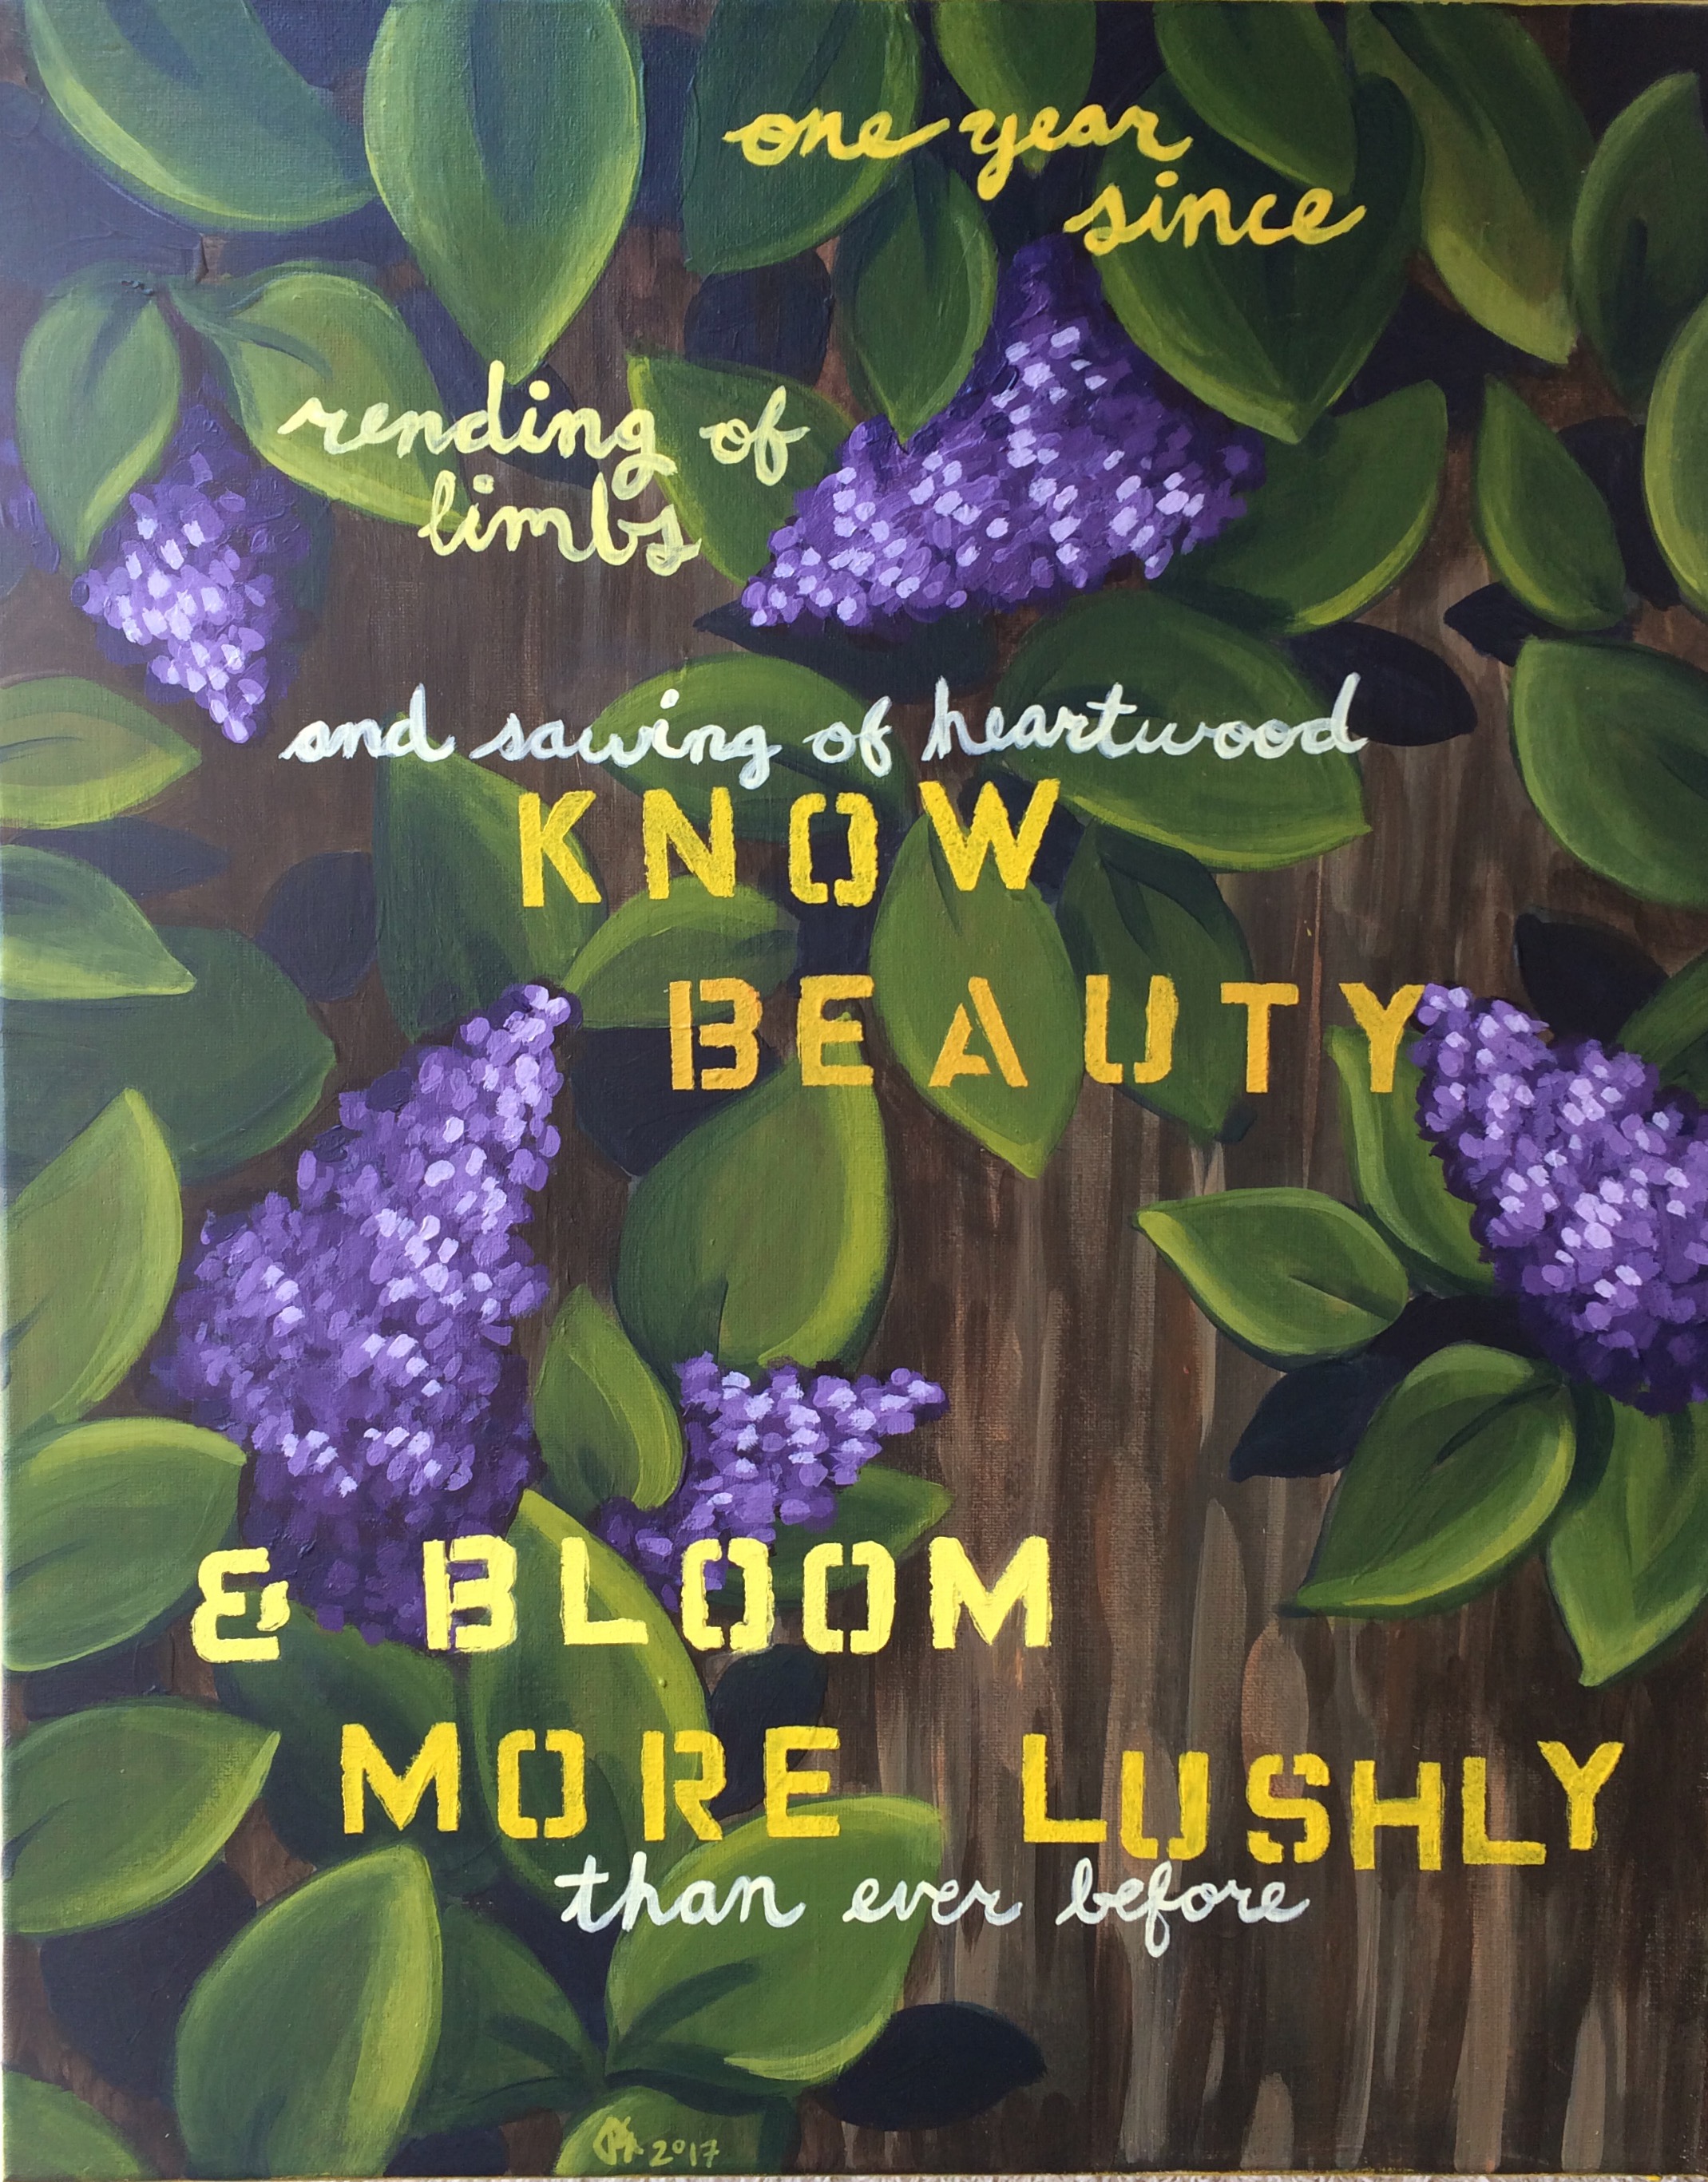 one year
since
rending of
limbs
and sawing of heartwood
KNOW
BEAUTY
& BLOOM
MORE LUSHLY
than ever before
2017